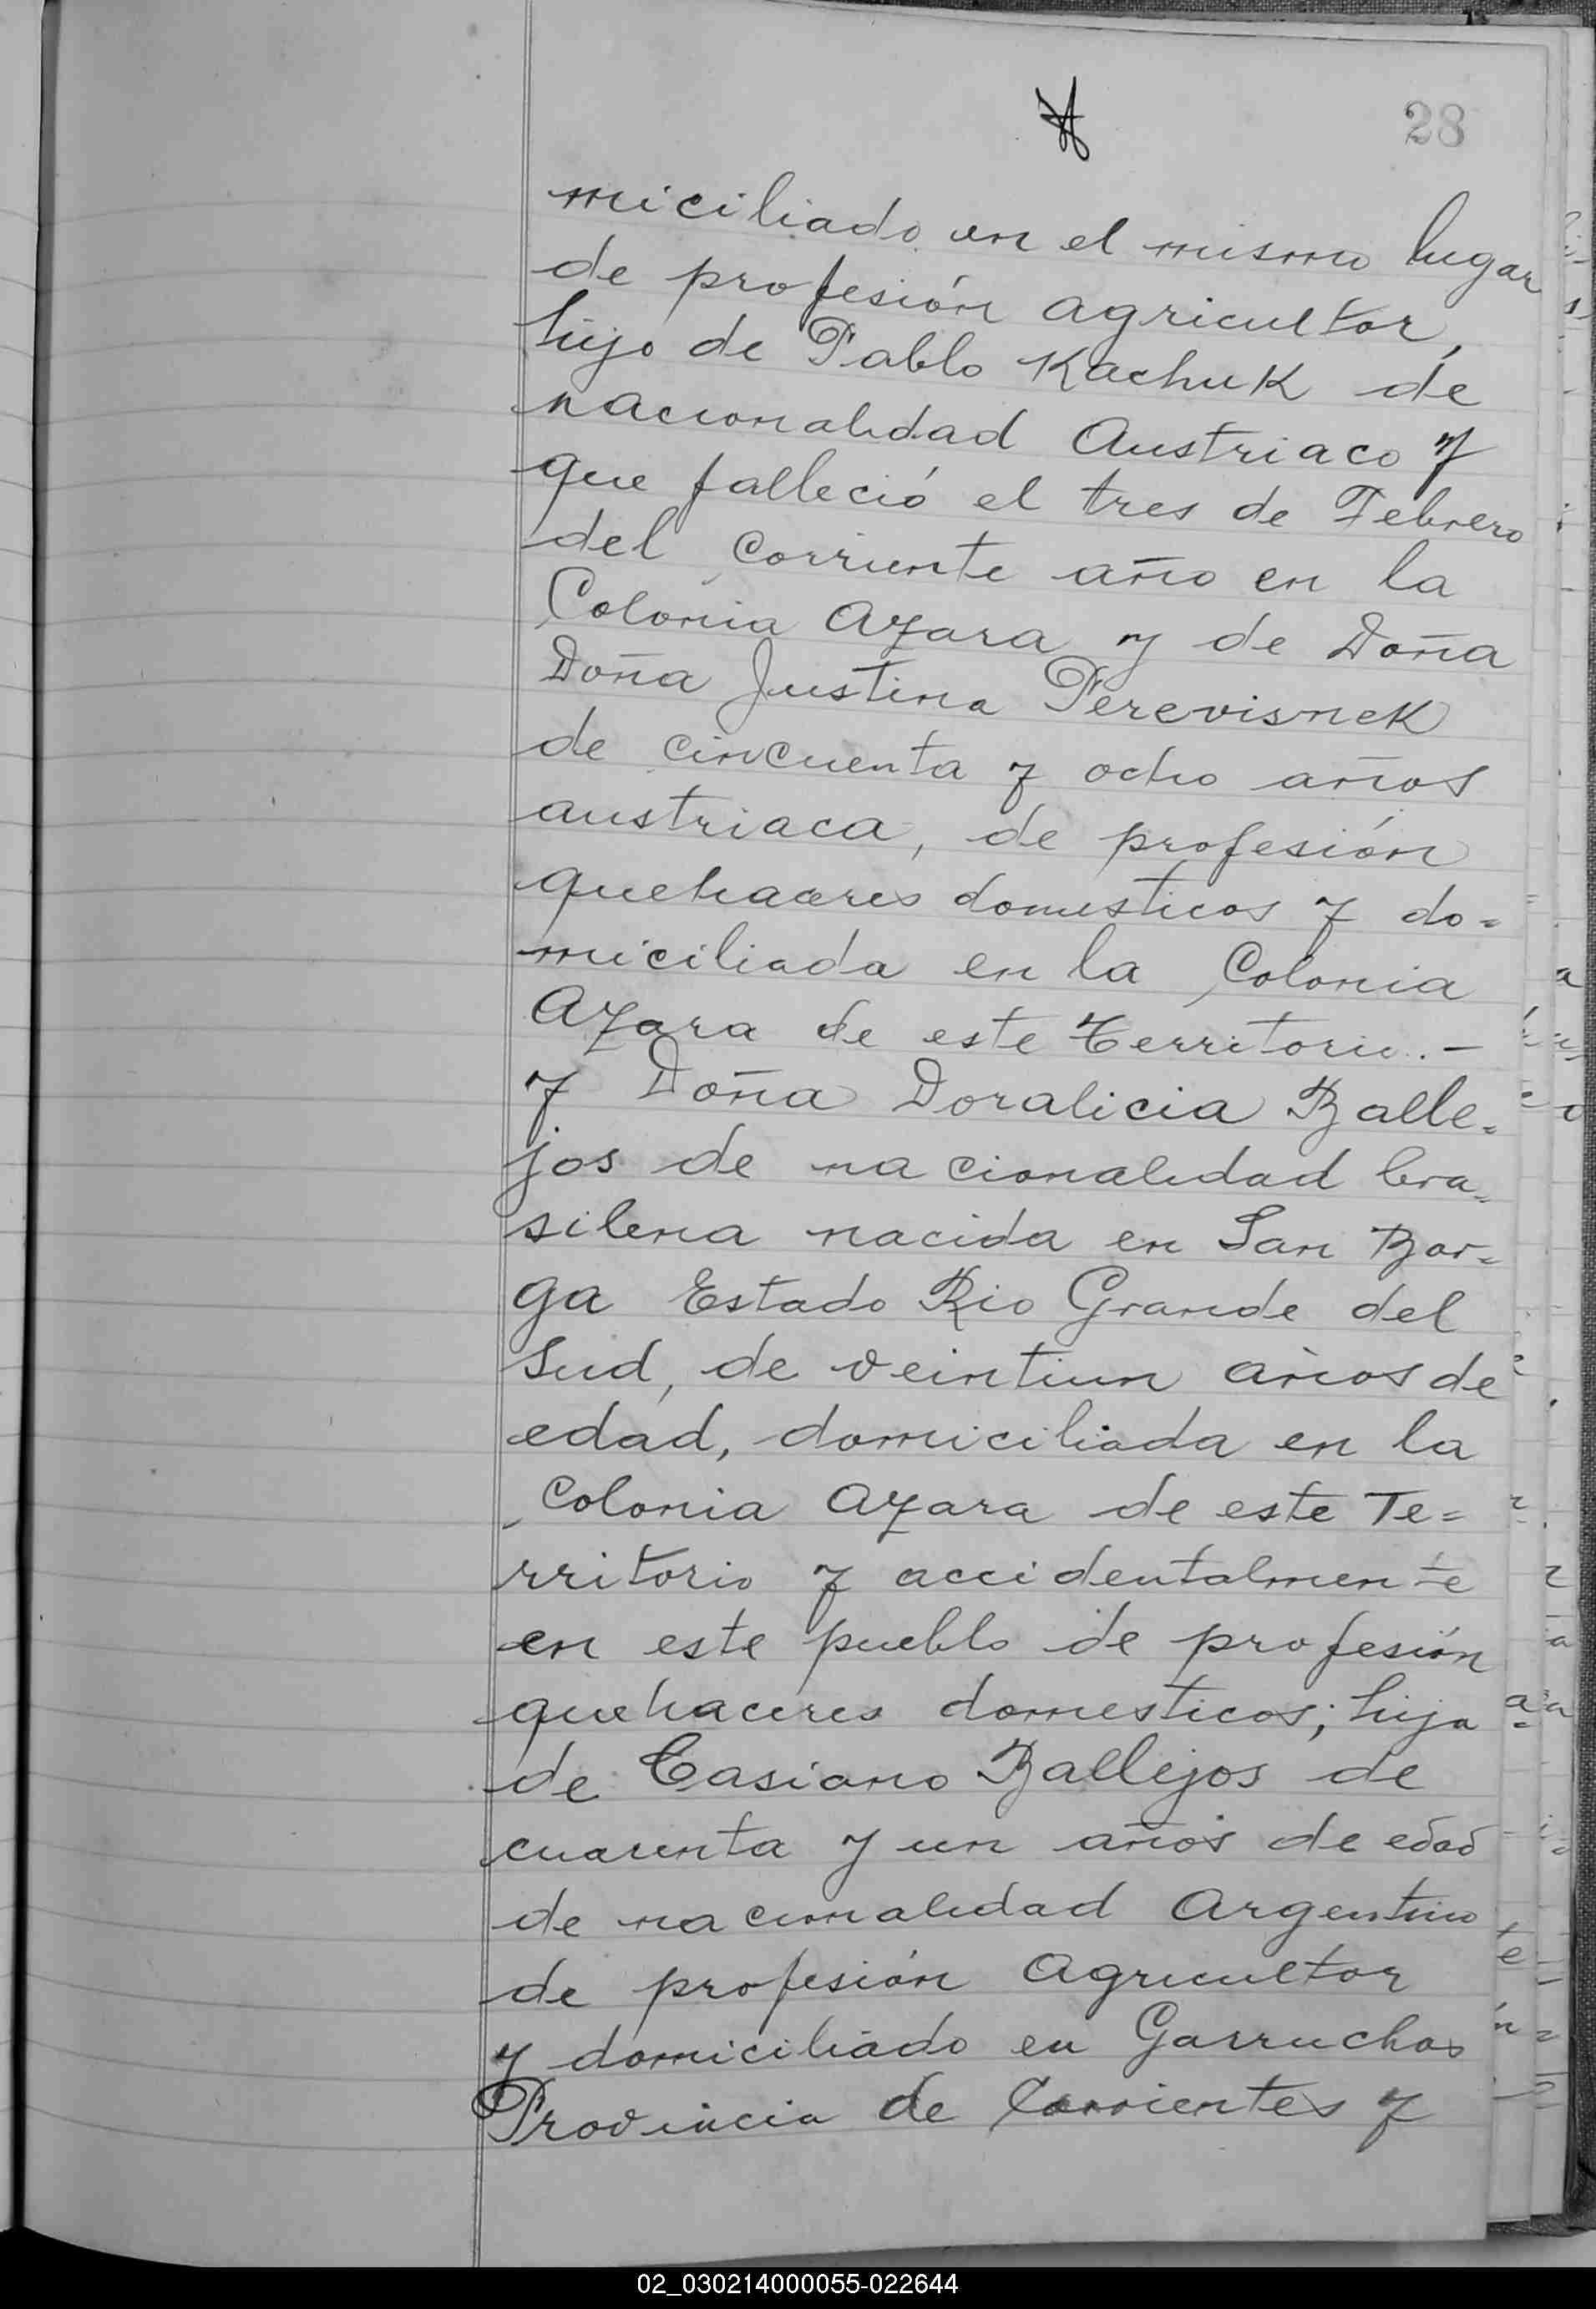 28
miciliado en el mismo lugar
de profesión agricultor,
hijo de Pablo Kachuk de
nacionalidad Austriaco y
que falleció el tres de Febrero
del corriente año en la
Colonia Azara y de Doña
Doña Justina Perevisnek
de cincuenta y ocho años
austriaca, de profesión
quehaceres domesticos y do=
miciliada en la Colonia
Azara de este Territorio.-
y Doña Doralicia Balle=
jos de nacionalidad bra=
silena nacida en San Bor=
ga Estado Rio Grande del
Sud, de veintiun años de
edad, domiciliada en la
Colonia Azara de este Te=
rritorio y accidentalmente
en este pueblo de profesión
quehaceres domesticos; hija
de Casiano Ballejos de
cuarenta y un años de edad
de nacionalidad Argentino
de profesión Agricultor
y domiciliado en Garruchos
Provincia de Corrientes y
02_030214000055-022644